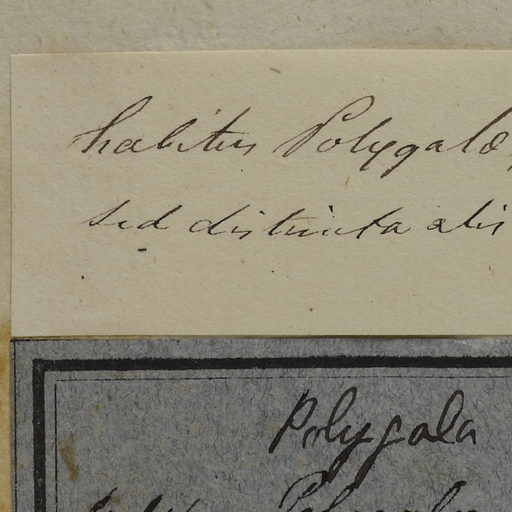 habitus Polygalæ,
sed distincta alis
Polygala